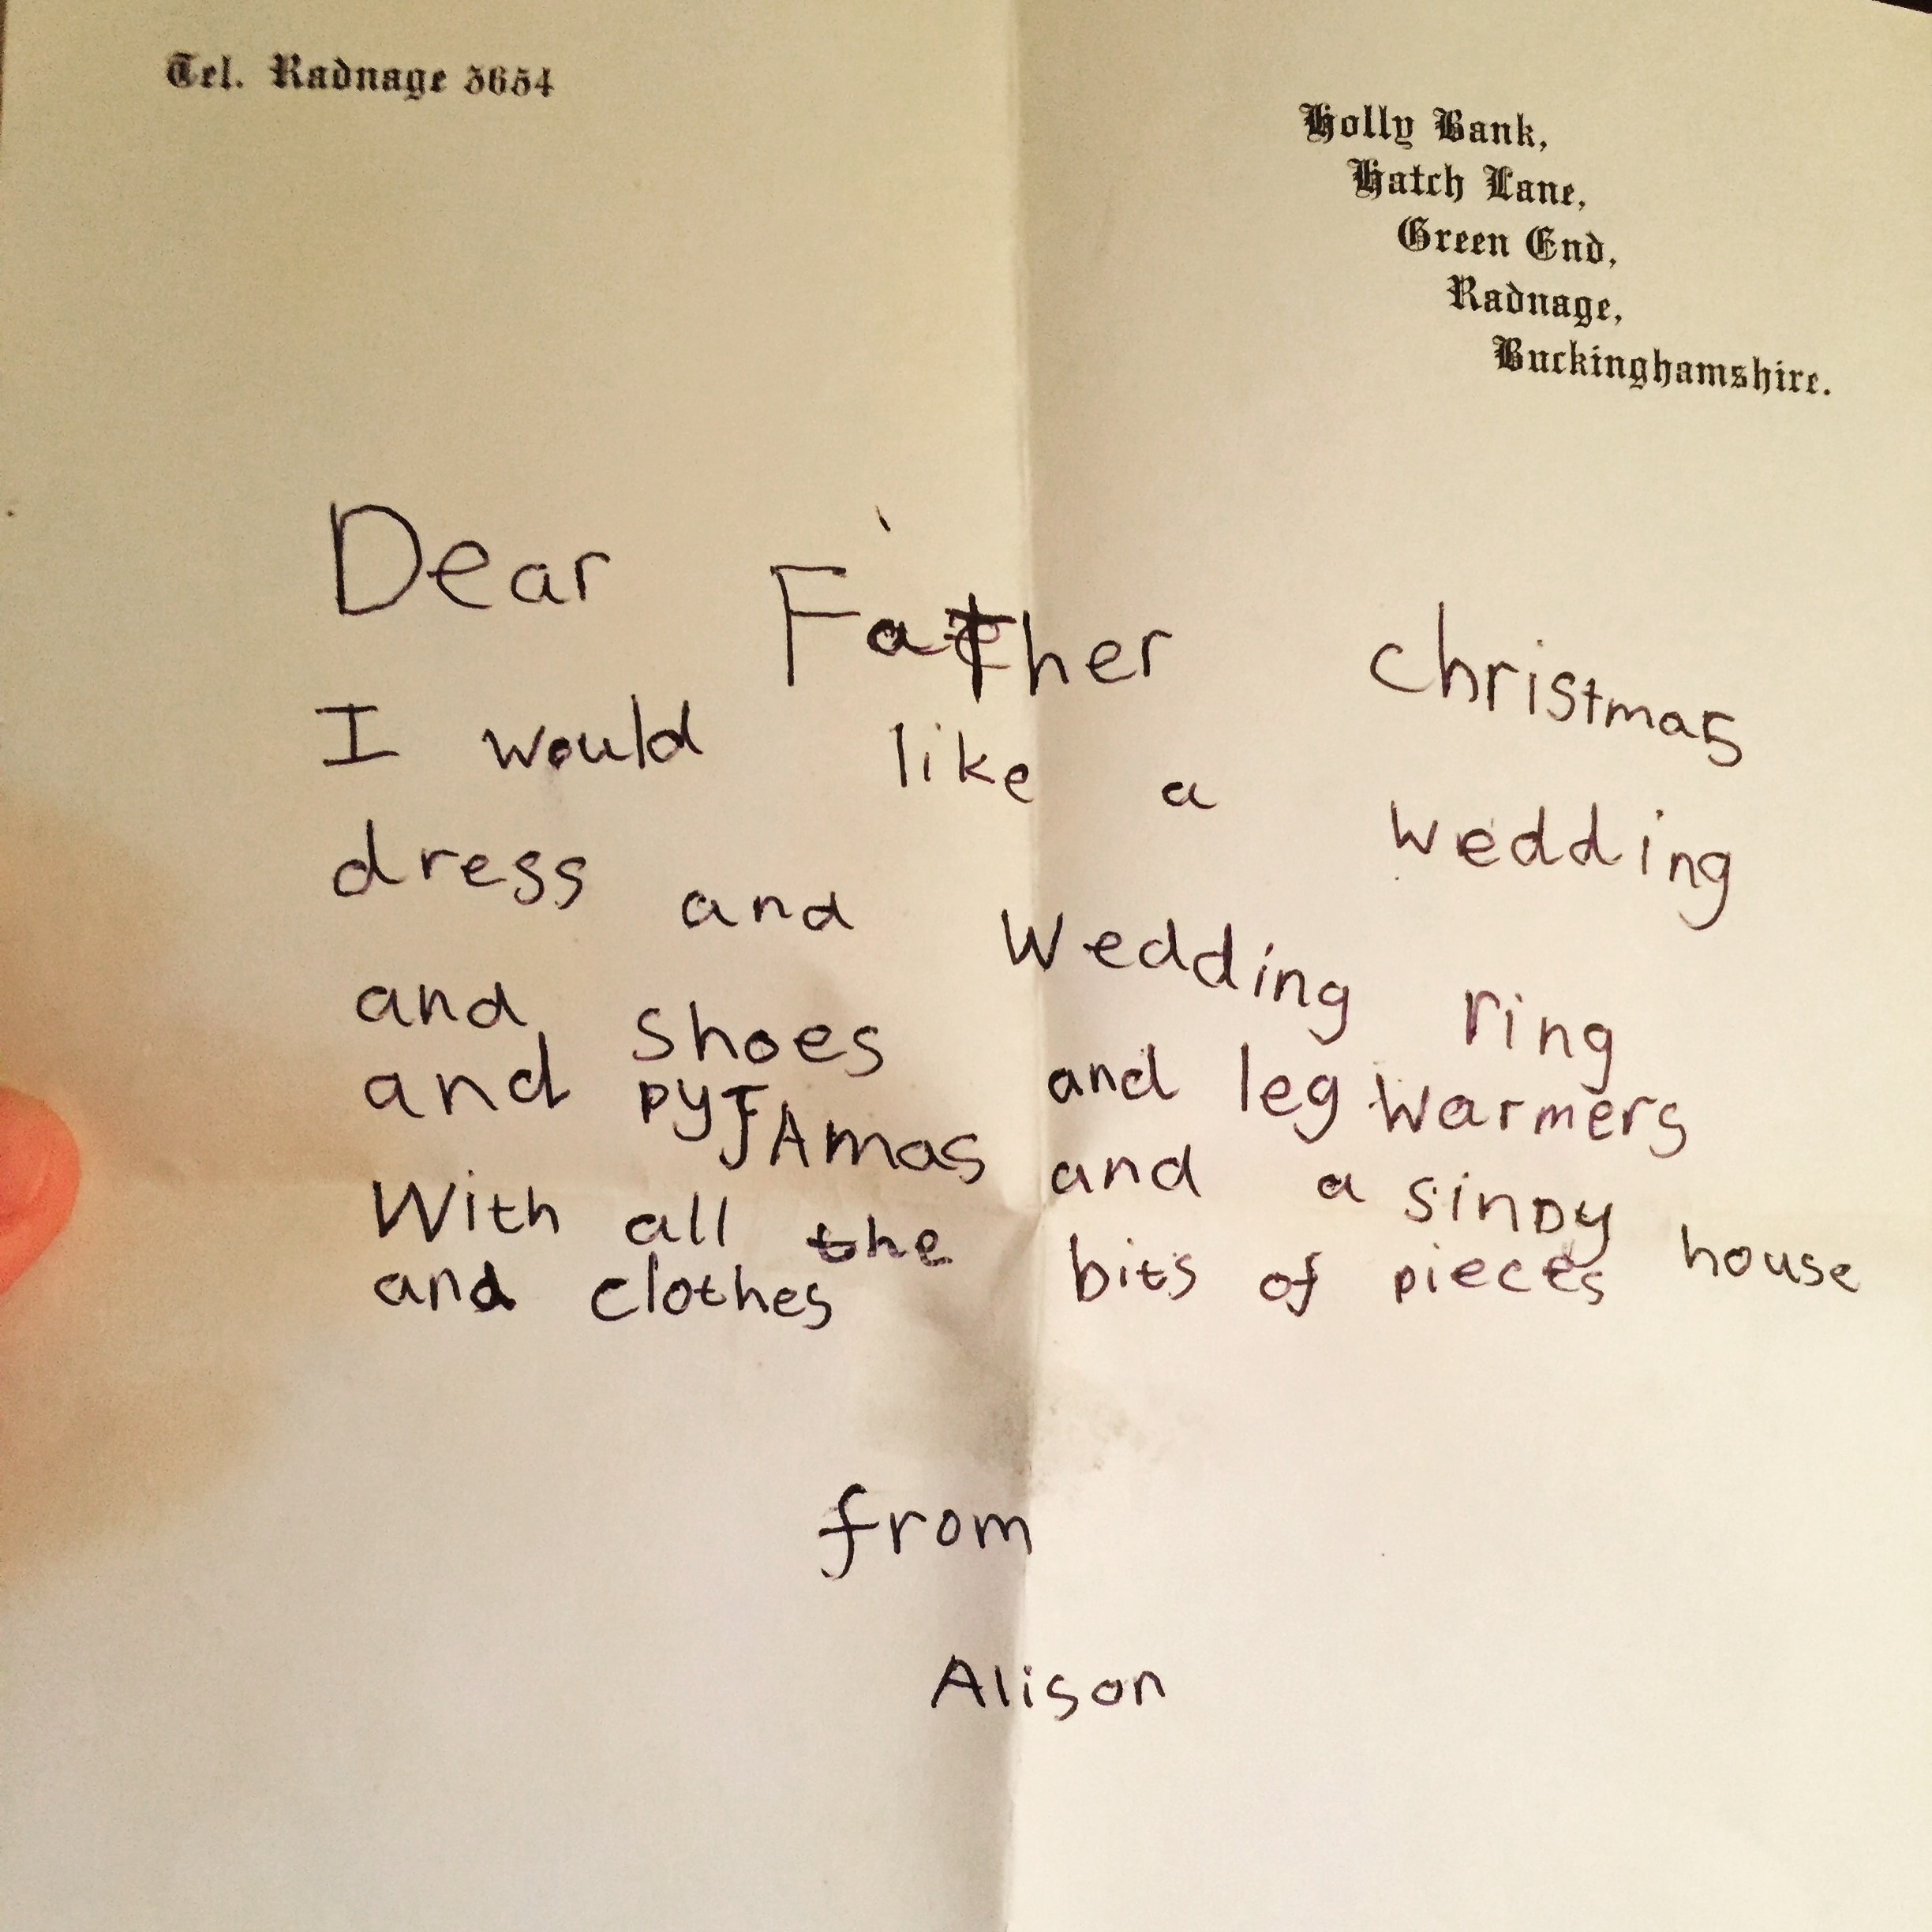 Tel. Radnage 5654
Holly Bank,
Hatch Lane,
Green End,
Radnage,
Buckinghamshire.
Dear Father christmas
I would like a wedding
dress and wedding ring
and shoes and leg warmers
and pyJAmas and a sindy house
With all the bits of pieces
and clothes
from
Alison